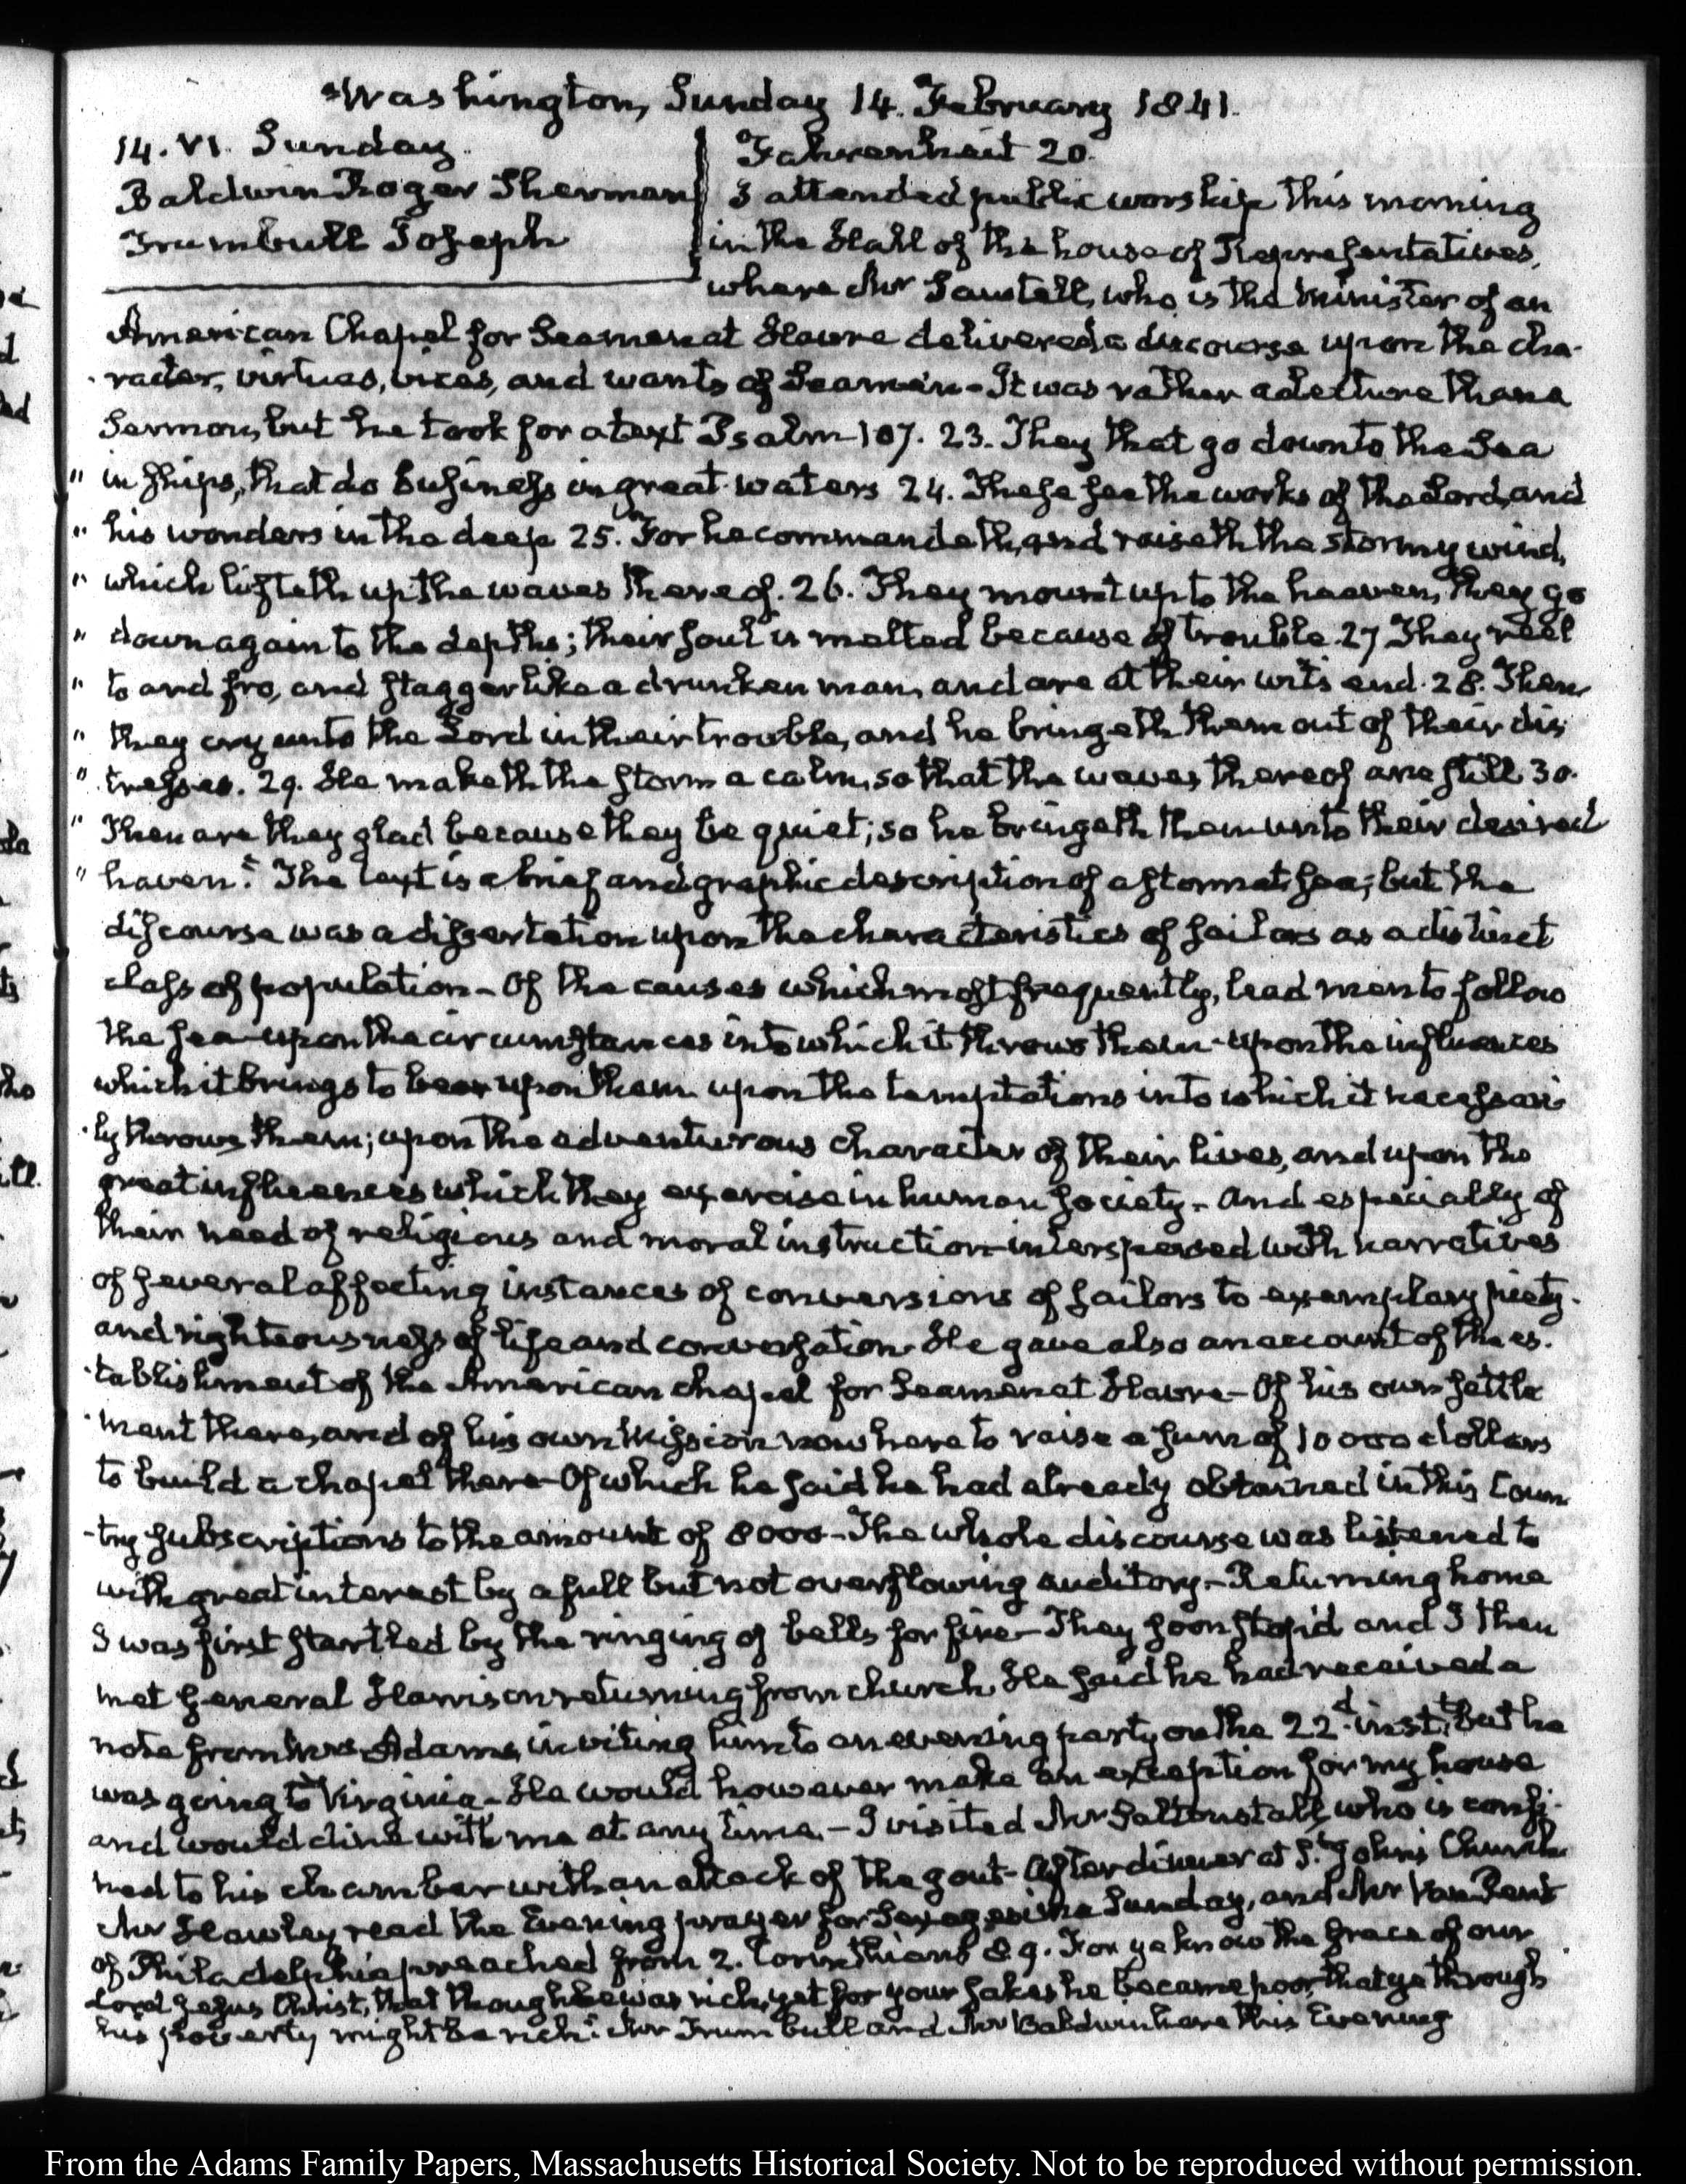 Washington, Sunday 14. February 1841.
14. VI. Sunday.
Baldwin Roger Sherman
Trumbull Joseph
Fahrenheit 20.
I attended public worship this morning
in the Hall of the house of Representatives,
where Mr Sawtell, who is the Minister of an
American Chapel for Seamen at Havre delivered a discourse upon the cha-
racter, virtues, vices, and wants of Seamen - It was rather a lecture than a
Sermon, but he took for a text Psalm 107. 23. They that go down to the Sea
" in ships, that do business in great waters 24. These see the works of the Lord, and
" his wonders in the deep 25. For he commandeth, and raiseth the stormy wind,
" which lifteth up the waves thereof. 26. They mount up to the heaven, they go
" down again to the depths; their soul is melted because of trouble. 27 They reel
" to and fro, and stagger like a drunken man, and are at their wits end. 28. Then
" they cry unto the Lord in their trouble, and he bringeth them out of their dis
" tresses. 29. He maketh the storm a calm, so that the waves thereof are still 30.
" Then are they glad because they be quiet; so he bringeth them unto their desired
" haven." The text is a brief and graphic description of a storm at sea; but the
discourse was a dissertation upon the characteristics of sailors as a distinct
class of population - Of the causes which most frequently, lead men to follow
the sea - upon the circumstances into which it throws them - upon the influences
which it brings to bear upon them upon the temptations into which it necessari-
ly throws them; upon the adventurous character of their lives, and upon the
great influences which they exercise in human society - and especially of
their need of religious and moral instruction - interspersed with narratives
of several affecting instances of conversions of sailors to exemplary piety
and righteousness of life and conversation. He gave also an account of the es-
tablishment of the American chapel for Seamen at Havre - Of his own settle
ment there, and of his own Mission now here to raise a sum of 10000 dollars
to build a chapel there - Of which he said he had already obtained in this Coun
-try subscriptions to the amount of 8000 - The whole discourse was listened to
with great interest by a full but not overflowing auditory - Returning home
I was first startled by the ringing of bells for fire - They soon stop'd and I then
met General Harrison returning from church. He said he had received a
note from Mrs Adams, inviting him to an evening party on the 22d. inst. But he
was going to Virginia - He would however make an exception for my house
and would dine with me at any time. - I visited Mr Saltonstall, who is confi-
ned to his chamber with an attack of the gout - After dinner at St. John's Church
Mr Hawley read the Evening prayer for Sexagesima Sunday, and Mr Van Pent
of Philadelphia preached from 2. Corinthians 8 9. For ye know the grace of our
Lord Jesus Christ, that though he was rich, yet for your sakes he became poor, that ye through
his poverty might be rich." Mr Trumbull and Mr Baldwin here this Evening
From the Adams Family Papers, Massachusetts Historical Society. Not to be reproduced without permission.